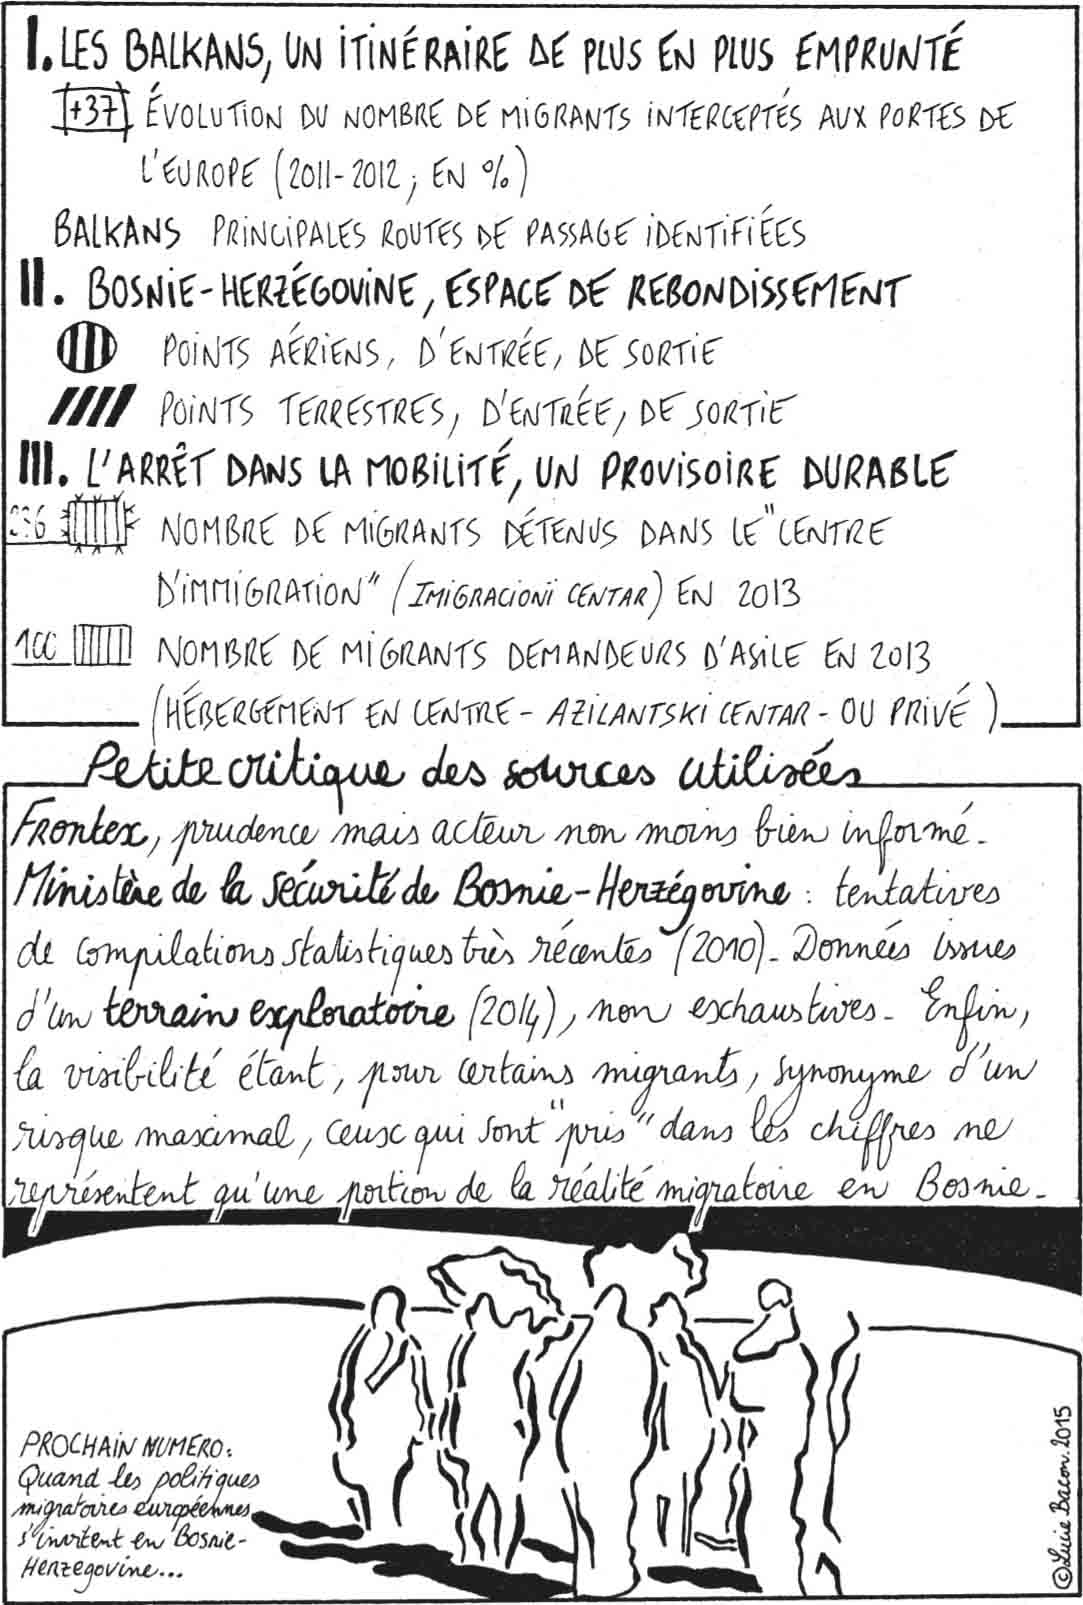 I. LES BALKANS, UN ITINÉRAIRE DE PLUS EN PLUS EMPRUNTÉ
+37 ÉVOLUTION DU NOMBRE DE MIGRANTS INTERCEPTÉS AUX PORTES DE
L'EUROPE (2011-2012 ; EN %)
BALKANS PRINCIPALES ROUTES DE PASSAGE IDENTIFIÉES
II. BOSNIE-HERZÉGOVINE, ESPACE DE REBONDISSEMENT
POINTS AÉRIENS, D'ENTRÉE, DE SORTIE
POINTS TERRESTRES, D'ENTRÉE, DE SORTIE
III. L'ARRÊT DANS LA MOBILITÉ, UN PROVISOIRE DURABLE
NOMBRE DE MIGRANTS DÉTENUS DANS LE "CENTRE
D'IMMIGRATION" (IMIGRACIONI CENTAR) EN 2013
100 NOMBRE DE MIGRANTS DEMANDEURS D'ASILE EN 2013
(HÉBERGEMENT EN CENTRE - AZILANTSKI CENTAR - OU PRIVÉ)
Petite critique des sources utilisées
Frontex, prudence mais acteur non moins bien informé.
Ministère de la sécurité de Bosnie-Herzégovine : tentatives
de compilations statistiques très récentes (2010). Données issues
d'un terrain exploratoire (2014), non exchaustives. Enfin,
la visibilité étant, pour certains migrants, synonyme d'un
risque maximal, ceux qui sont "pris" dans les chiffres ne
représentent qu'une portion de la réalité migratoire en Bosnie.
PROCHAIN NUMERO:
Quand les politiques
migratoires européennes
s'invitent en Bosnie-
Herzegovine...
©Lucie Bacon. 2015